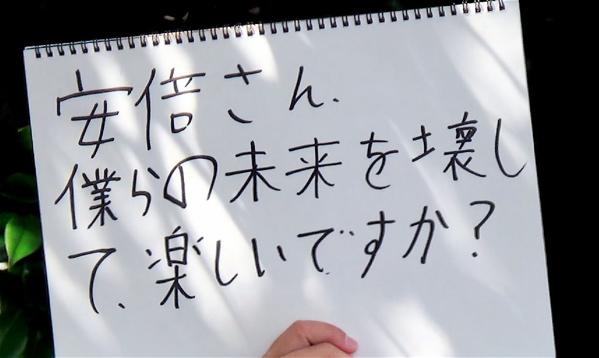 安倍さん、
僕らの未来を壊し
て、楽しいですか？